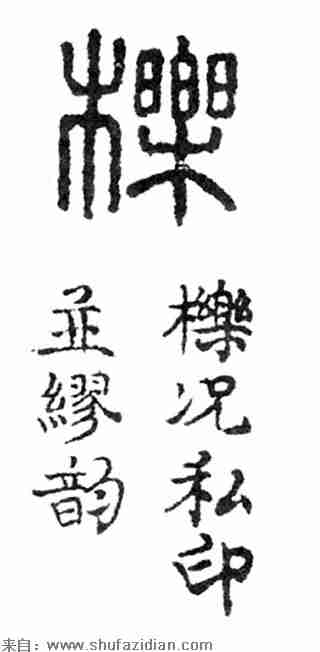 櫟
櫟况私印
並繆韵
来自：www.shufazidian.com